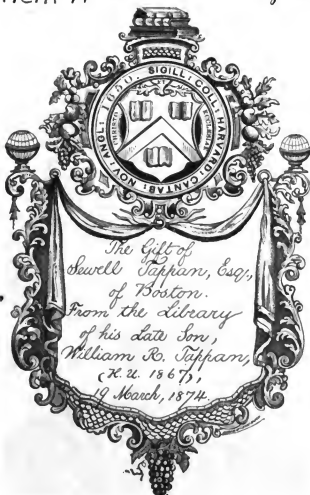 SIGILL: COLL: HARVARD: CANTAB: NOV: ANGL: 1650.
CHRISTO
ECCLESIAE
The Gift of
Sewell Tappan, Esq.,
of Boston.
From the Library
of his Late Son,
William R. Tappan,
(H. U. 1867),
19 March, 1874.